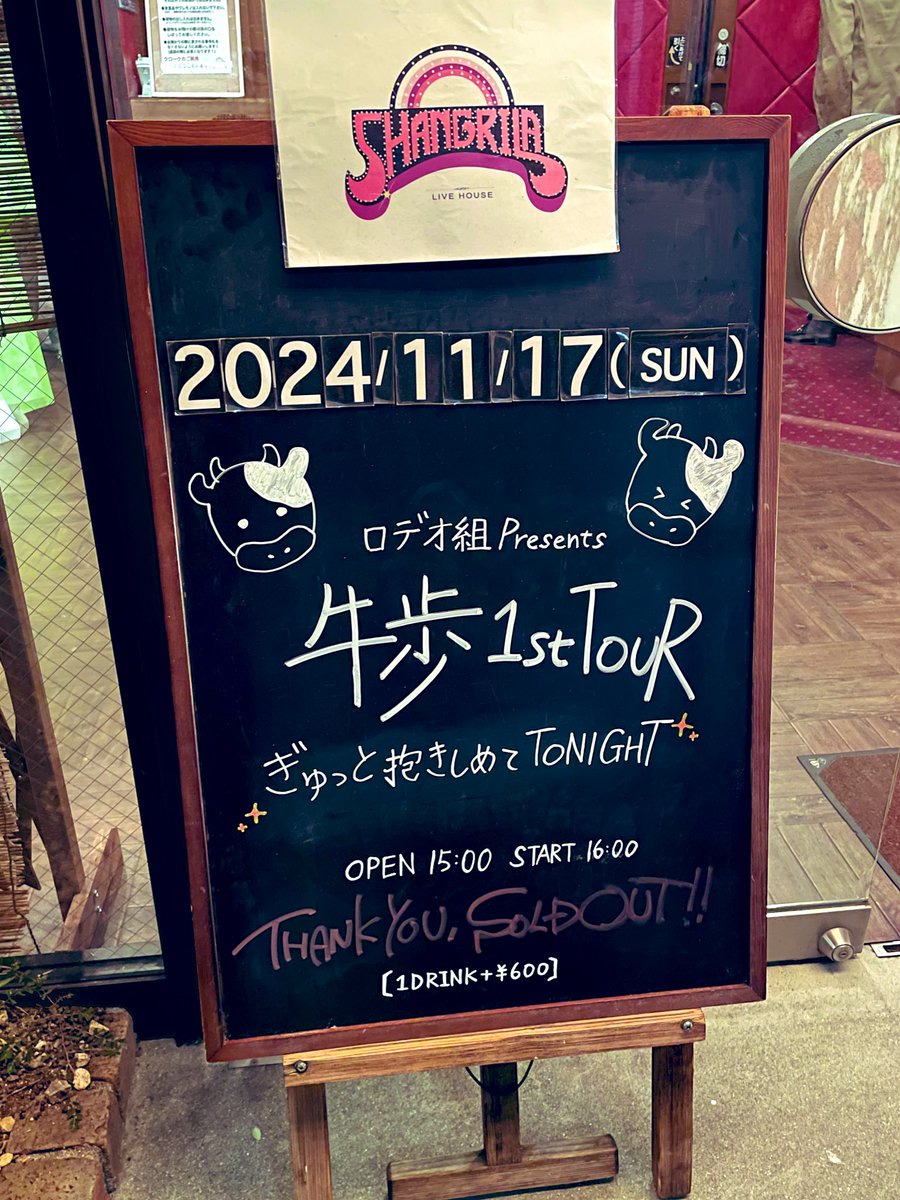 SHANGRILA
LIVE HOUSE
2024/11/17(SUN)
ロデオ組 Presents
牛歩 1st TOUR
ぎゅっと抱きしめて TONIGHT
OPEN 15:00 START 16:00
THANK YOU, SOLD OUT!!
[1DRINK+¥600]